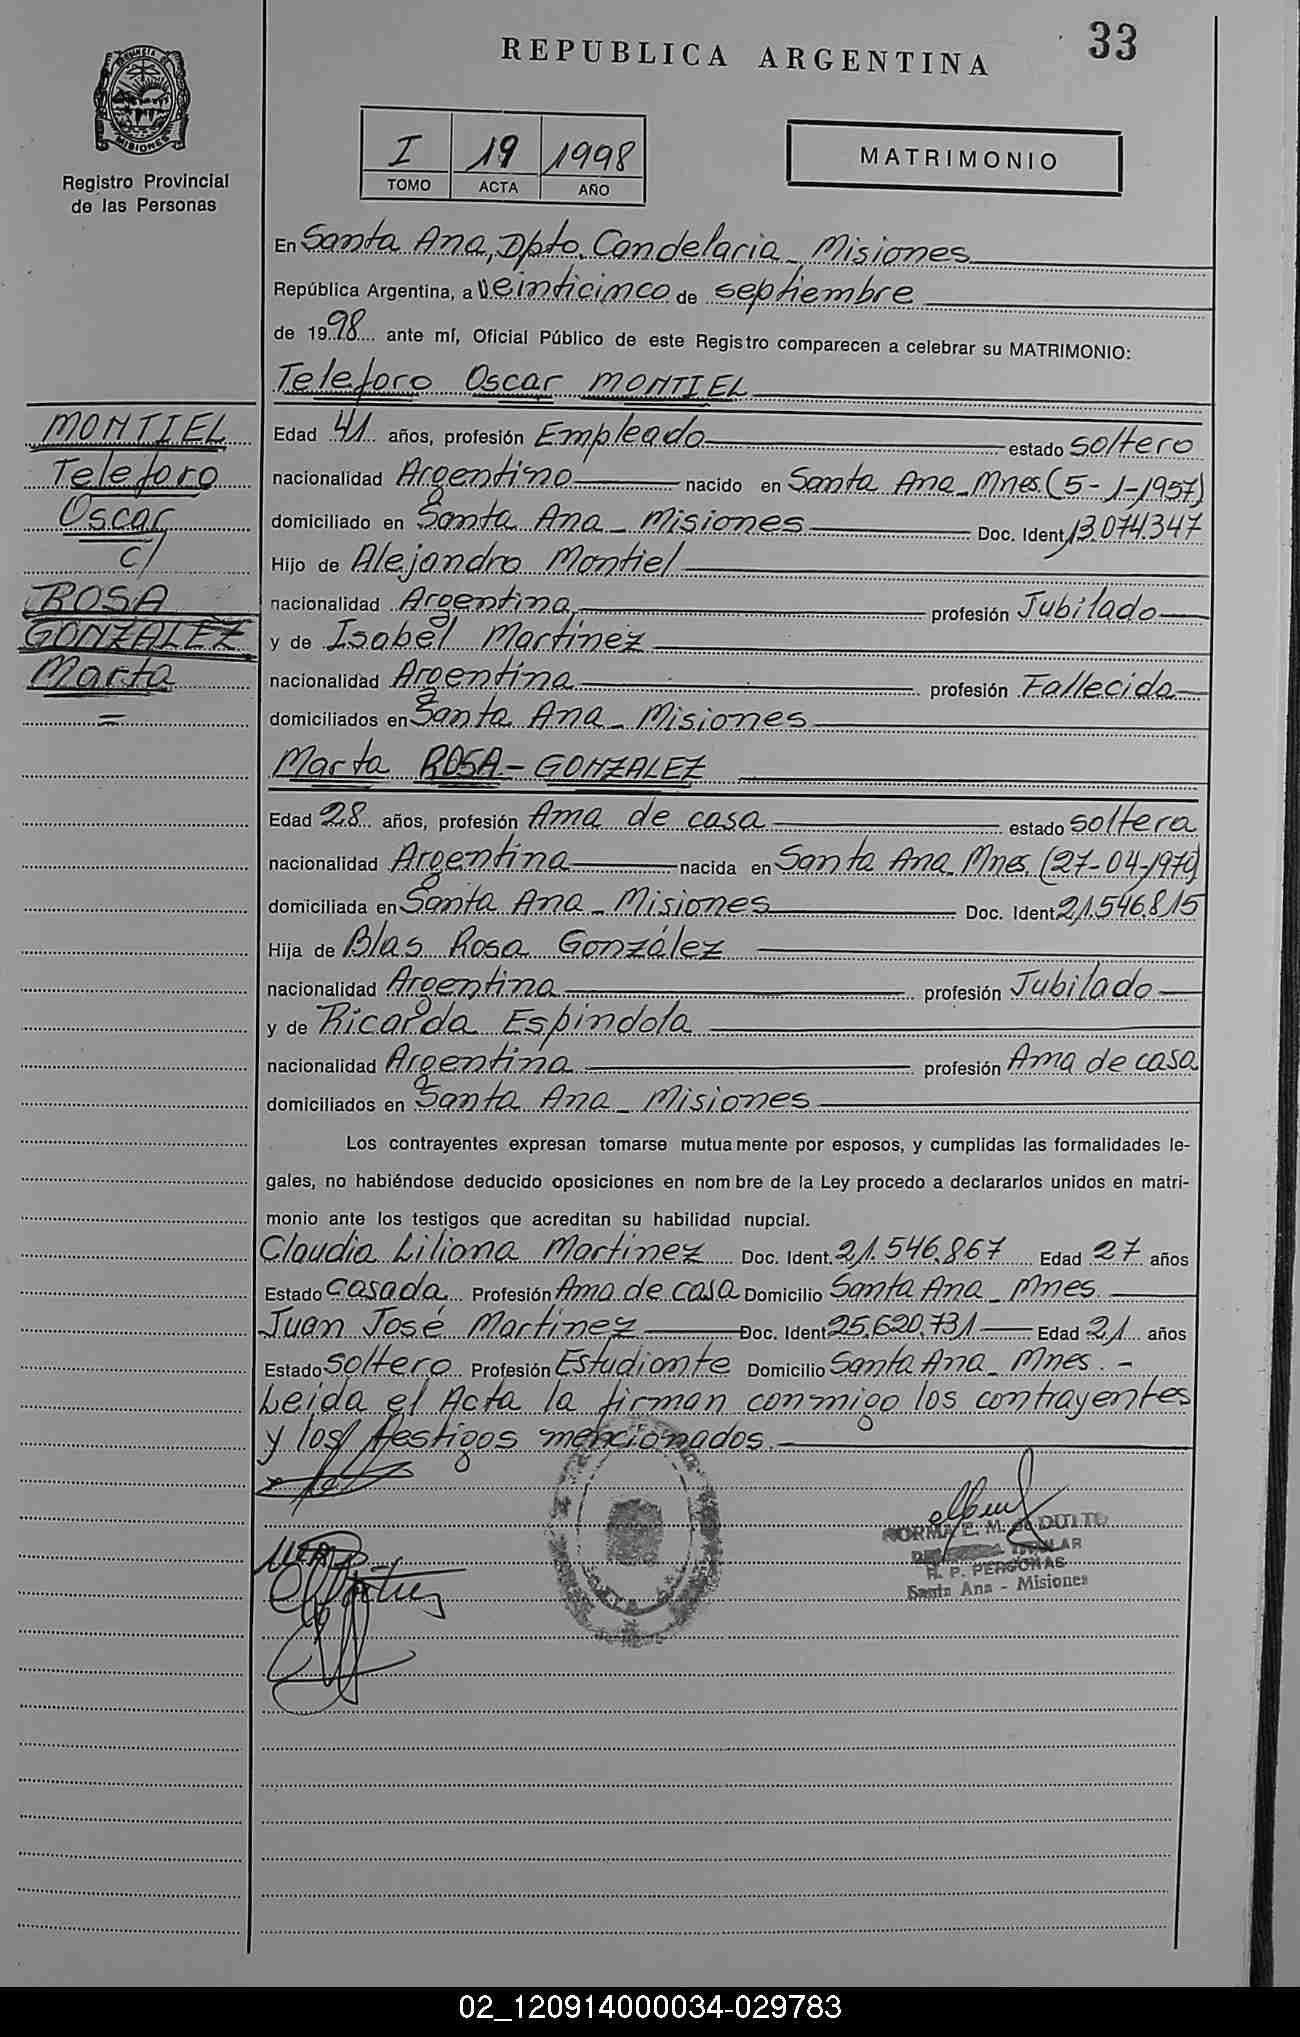 33
REPUBLICA ARGENTINA
MISIONES
Registro Provincial
de las Personas
I 19 1998
TOMO ACTA AÑO
MATRIMONIO
En Santa Ana, Dpto. Candelaria - Misiones
República Argentina, a veinticinco de septiembre
de 1998 ante mí, Oficial Público de este Registro comparecen a celebrar su MATRIMONIO:
Teleforo Oscar MONTIEL
MONTIEL
Teleforo
Oscar
c/
ROSA
GONZALEZ
Marta
=
Edad 41 años, profesión Empleado estado soltero
nacionalidad Argentino nacido en Santa Ana - Mnes. (5-1-1957)
domiciliado en Santa Ana - Misiones Doc. Ident. 13.074.347
Hijo de Alejandro Montiel
nacionalidad Argentina profesión Jubilado
y de Isabel Martinez
nacionalidad Argentina profesión Fallecida
domiciliados en Santa Ana - Misiones
Marta ROSA - GONZALEZ
Edad 28 años, profesión Ama de casa estado soltera
nacionalidad Argentina nacida en Santa Ana - Mnes. (27-04-1970)
domiciliada en Santa Ana - Misiones Doc. Ident. 21.546.815
Hija de Blas Rosa González
nacionalidad Argentina profesión Jubilado
y de Ricarda Espindola
nacionalidad Argentina profesión Ama de casa
domiciliados en Santa Ana - Misiones
Los contrayentes expresan tomarse mutuamente por esposos, y cumplidas las formalidades le-
gales, no habiéndose deducido oposiciones en nombre de la Ley procedo a declararlos unidos en matri-
monio ante los testigos que acreditan su habilidad nupcial.
Claudia Liliana Martinez Doc. Ident. 21.546.867 Edad 27 años
Estado casada Profesión Ama de casa Domicilio Santa Ana - Mnes.
Juan José Martinez Doc. Ident. 25.620.731 Edad 21 años
Estado soltero Profesión Estudiante Domicilio Santa Ana - Mnes. -
Leida el Acta la firman conmigo los contrayentes
y los testigos mencionados.
NORMA E. M. de DUTTO
R. P. PERSONAS
Santa Ana - Misiones
02_120914000034-029783